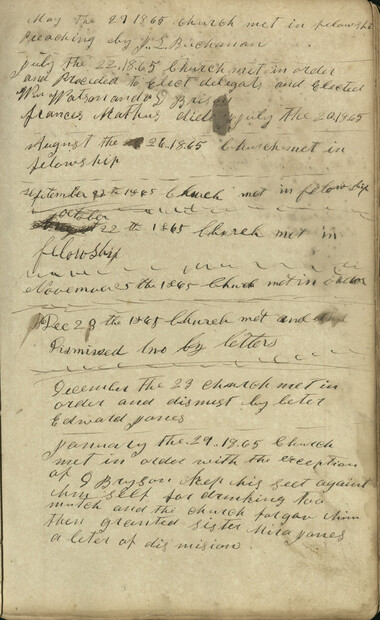 May the 27 1865 Church met in fellowship
Preaching by J.L. Buchanan
July the 22. 1865 Church met in order
and Proceded to Elect delegats and Elected
Wm Watson and
frances Mathus died july the 20 1865
August the 26. 1865 Church met in
felowship
September the 1865 Church met in felowship
october
22 th 1865 Church met in
fellowship
the 1865 Church met in order
Dec 23 the 1865 Church met and
Dismissed two by letters
December the 23 church met in
order and dismust by leter
Edward Jones
January the 29. 1865 Church
met in order with the exception
of J Bryson Kep his seet against
him self for drinking too
mutch and the church forgav him
then granted sister Jones
a leter of dismision.